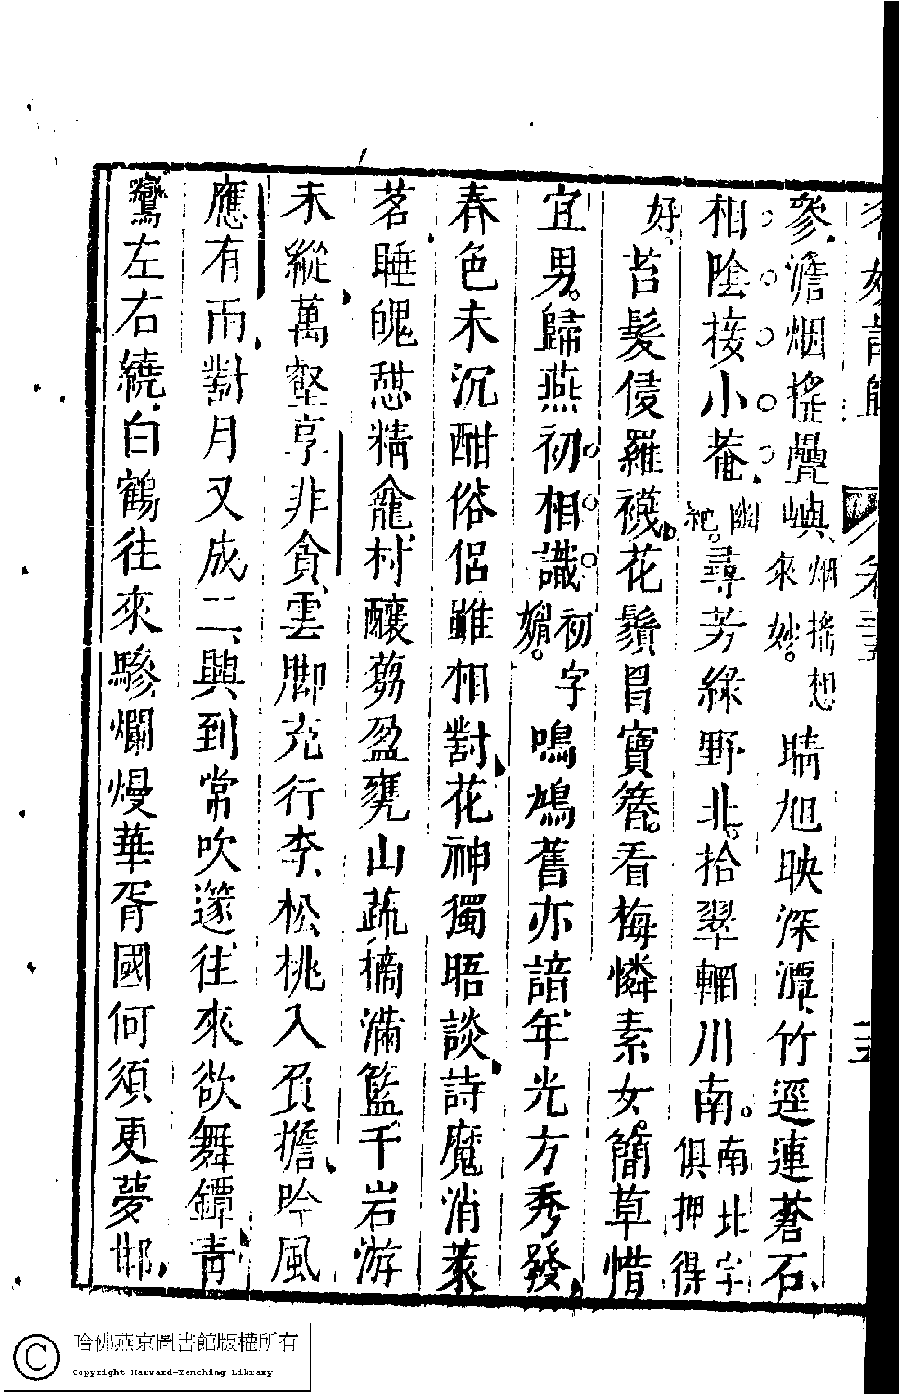 參澹烟搖疊嶼烟搖想來妙晴旭映深潭竹逕連蒼石
相陰接小菴幽尋芳綠野北拾翠輞川南南北字俱押得
好苔髮侵羅襪花鬚冒寶簪看梅憐素女簡草惜
宜男歸燕初相識初字媚鳴鳩舊亦諳年光方秀發
春色未沉酣俗侶雖相對花神獨晤談詩魔消茗
茗睡魄憇精龕村釀蒭盈甕山蔬摘滿籃千岩游
未縱萬壑享非貪雲脚充行李松桃入負擔吟風
應有雨對月又成二興到常吹邃往來欲舞鐔青
鸞左右繞白鶴往來驂爛熳華胥國何須更夢邯
卷三
哈佛燕京圖書館版權所有
Copyright Harvard-Yenching Library